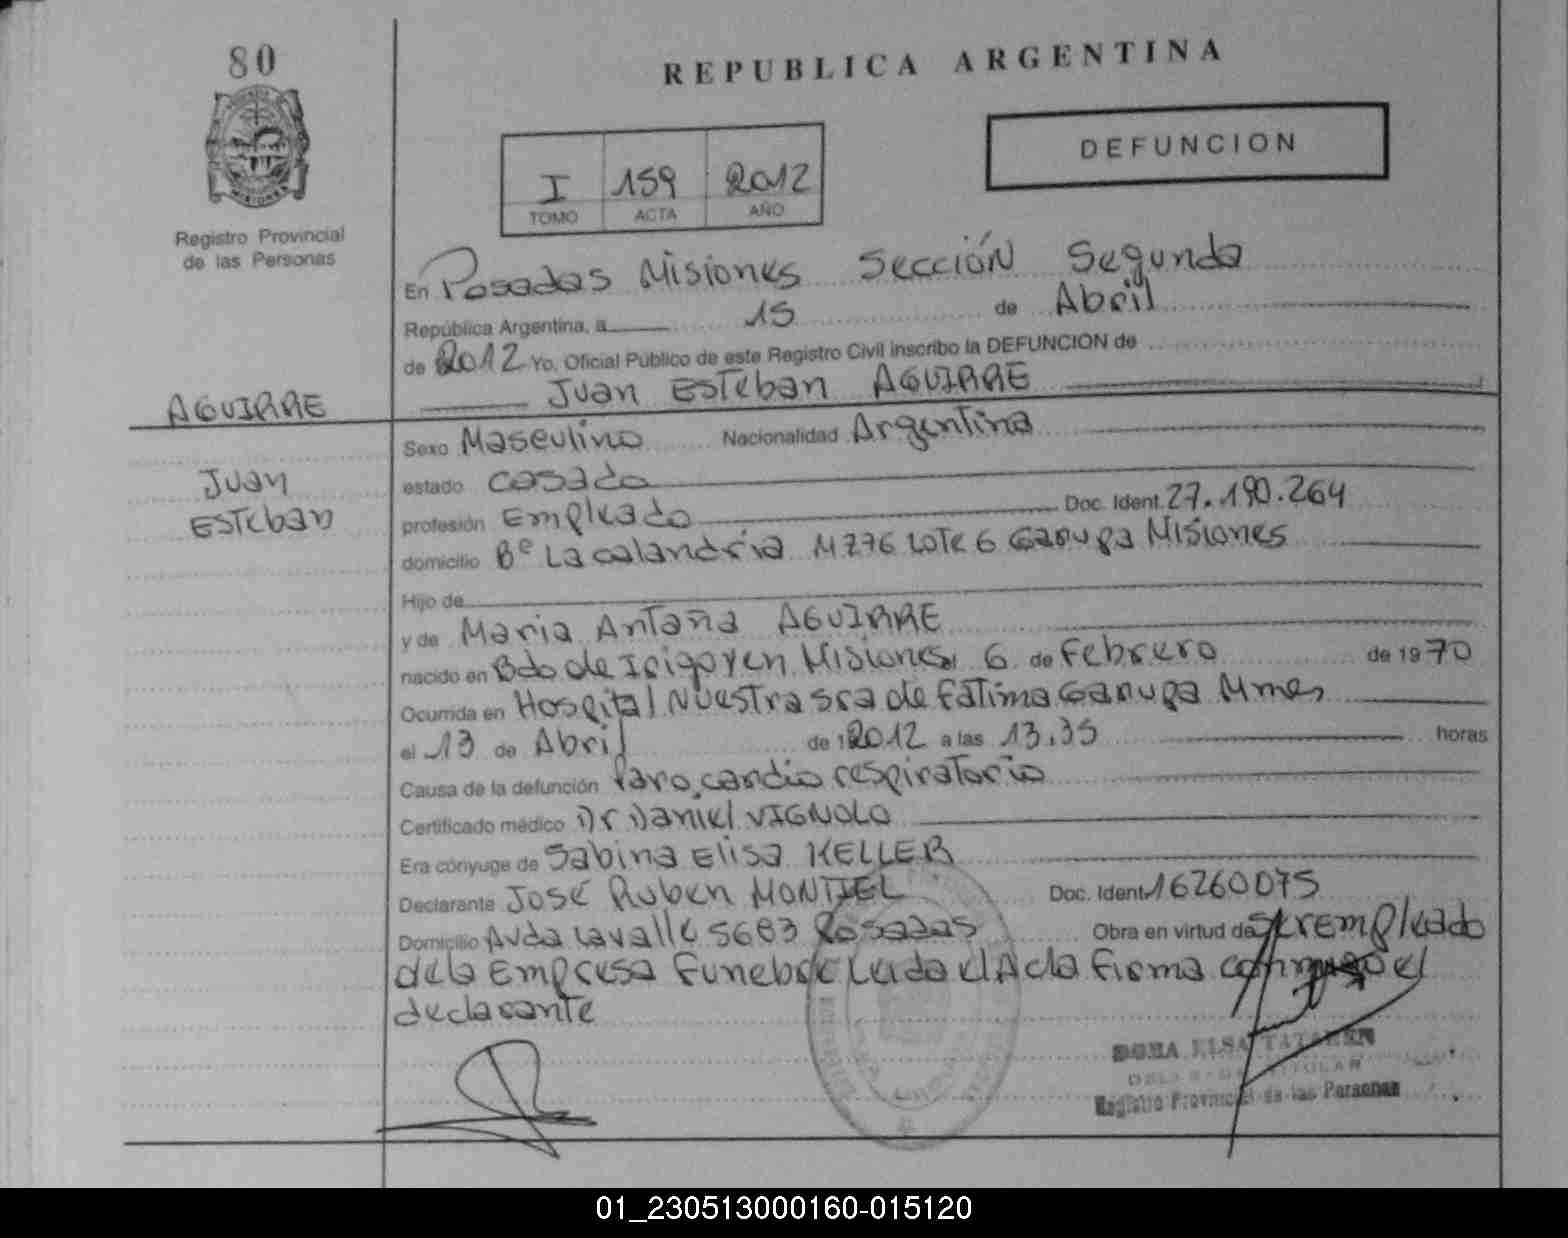 80
REPUBLICA ARGENTINA
DEFUNCION
I 159 2012
TOMO ACTA AÑO
Registro Provincial
de las Personas
En Posadas Misiones Sección Segunda
República Argentina, a 15 de Abril
de 2012 Yo, Oficial Público de este Registro Civil inscribo la DEFUNCION de
Juan Esteban AGUIRRE
AGUIRRE
Juan
Esteban
Sexo Masculino Nacionalidad Argentina
estado casado
profesión Empleado Doc. Ident. 27.190.264
domicilio Bº La calandria M276 Lote 6 Garupa Misiones
Hijo de
y de Maria Antaña AGUIRRE
nacido en Bdo de Irigoyen Misiones, 6 de Febrero de 1970
Ocurrida en Hospital Nuestra sra de Fátima Garupa Mnes
el 13 de Abril de 2012 a las 13,35 horas
Causa de la defunción Paro, cardio respiratorio
Certificado médico Dr Daniel VIGNOLO
Era cónyuge de Sabina Elisa KELLER
Declarante José Ruben MONTIEL Doc. Ident. 16260075
Domicilio Avda Lavalle 5683 Posadas Obra en virtud de ser empleado
de la Empresa Funebre Leida el Acta Firma conmigo el
declarante
DORA ELSA
TITULAR
Registro Provincial de las Personas
01_230513000160-015120